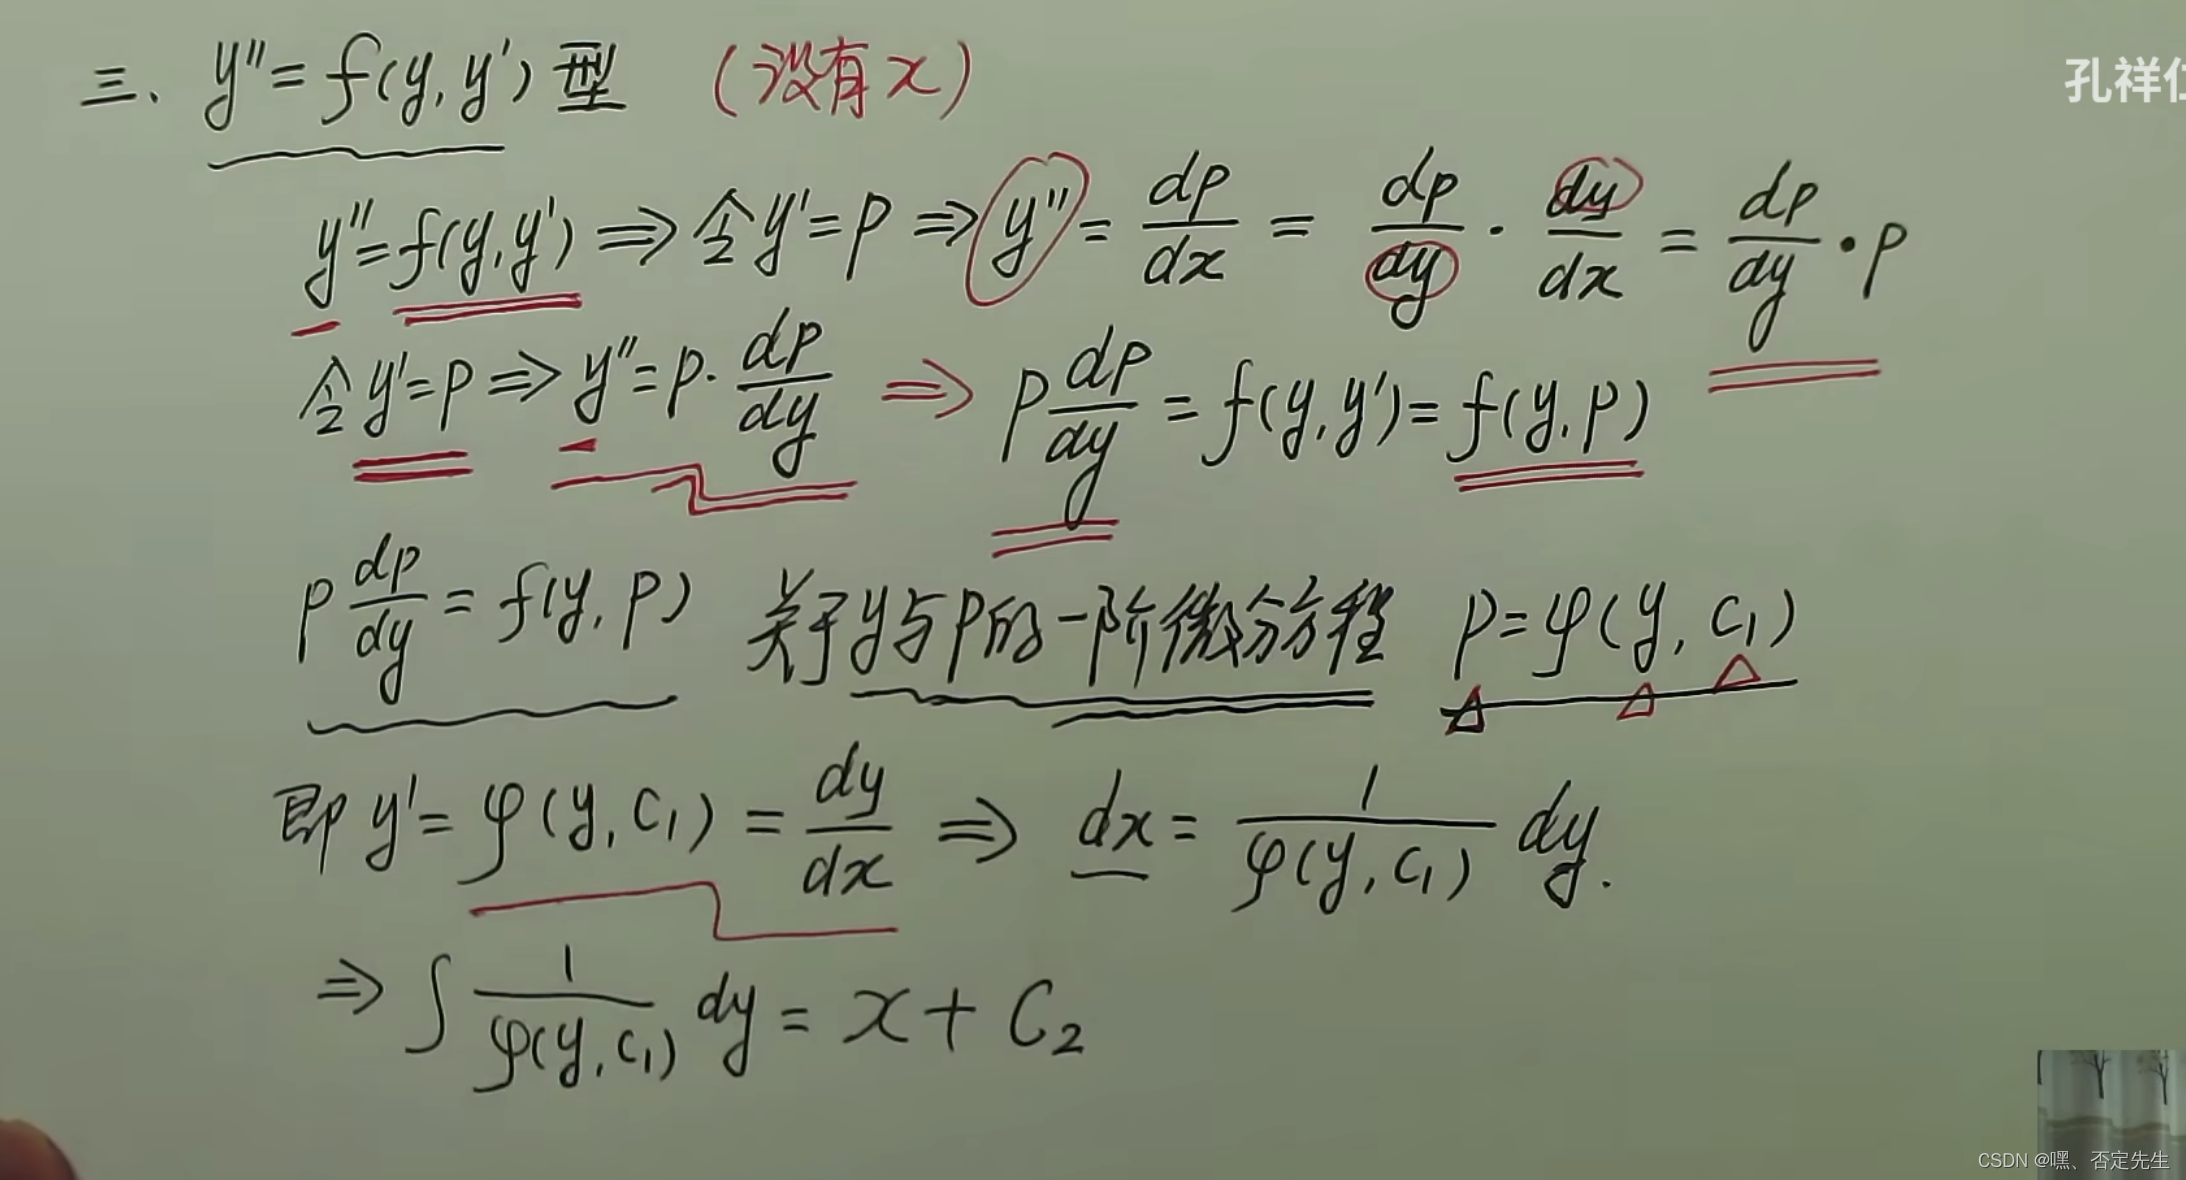 三、y''=f(y,y')型 (没有x)
孔祥仁
y''=f(y,y')⇒令y'=p⇒y''=dp/dx=dp/dy·dy/dx=dp/dy·p
令y'=p⇒y''=p·dp/dy⇒p dp/dy=f(y,y')=f(y,p)
p dp/dy=f(y,p) 关于y与p的一阶微分方程 p=φ(y,C₁)
即y'=φ(y,C₁)=dy/dx⇒dx=1/φ(y,C₁) dy.
⇒∫1/φ(y,C₁) dy=x+C₂
CSDN @嘿、否定先生